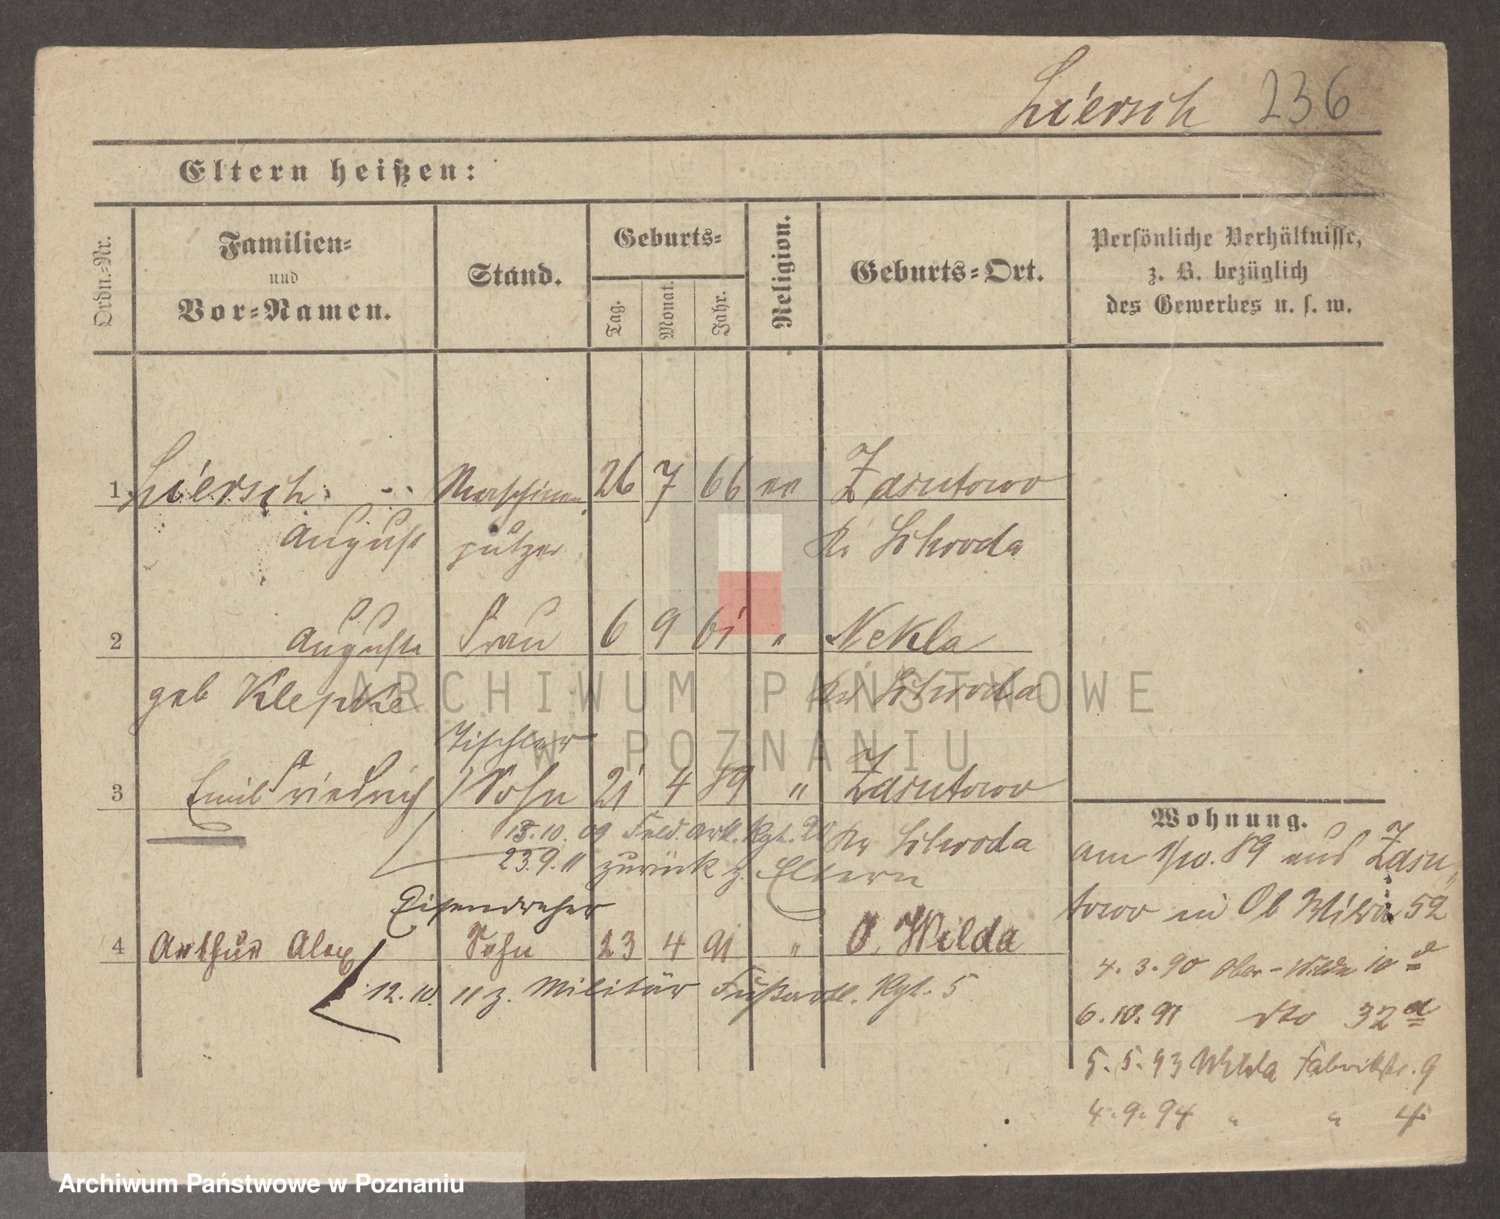 Liersch 236
Eltern heißen:
Ordn.-Nr.
Familien-
und
Vor-Namen.
Stand.
Geburts-
Tag.
Monat.
Jahr.
Religion.
Geburts-Ort.
Persönliche Verhältnisse,
z. B. bezüglich
des Gewerbes u. s. w.
1 Liersch Maschinen 26 7 66 ev Zasutowo
August putzer Kr Schroda
2 Auguste Frau 6 9 61 " Nekla
geb Klepke Kr Schroda
Tischler
3 Emil Friedrich Sohn 21 4 89 " Zasutowo
13.10.09 Feld. Art. Rgt. 20 Kr Schroda
23.9.11 zurück z. Eltern
Eisendreher
4 Arthur Alex Sohn 23 4 91 " O. Wilda
12.10.11 z. Militär Fußartl. Rgt. 5
Wohnung.
am 1/10.89 aus Zasu
towo in Ob Wilda 52
4.3.90 Ober-Wilda 10
6.10.91 dto 32a
5.5.93 Wilda Fabrikstr. 9
4.9.94 " " 4
ARCHIWUM PAŃSTWOWE
W POZNANIU
Archiwum Państwowe w Poznaniu